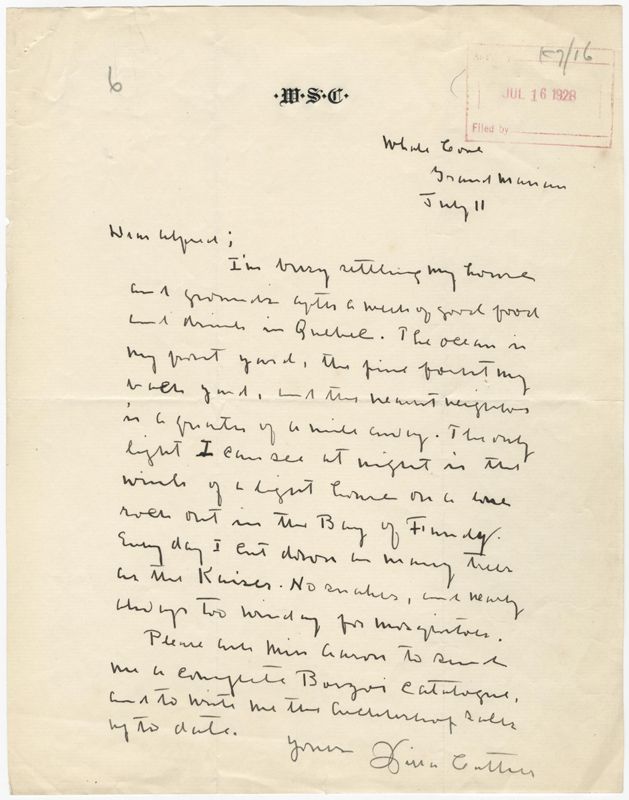 6
K7/16
·W·S·C·
JUL 16 1928
Filed by
Whale Cove
Grand Manan
July 11
Dear Alfred;
I'm busy settling my house
and grounds after a week of good food
and drink in Quebec. The ocean is
my front yard, the pine forest my
back yard, and the nearest neighbor
is a quarter of a mile away. The only
light I can see at night is the
wink of a light house on a lone
rock out in the Bay of Fundy.
Every day I cut down as many trees
as the Kaiser. No snakes, and nearly
always too windy for mosquitoes.
Please ask Miss Aaron to send
me a complete Borzoi Catalogue,
and to write me the Archbishop sales
up to date.
Yours
Willa Cather